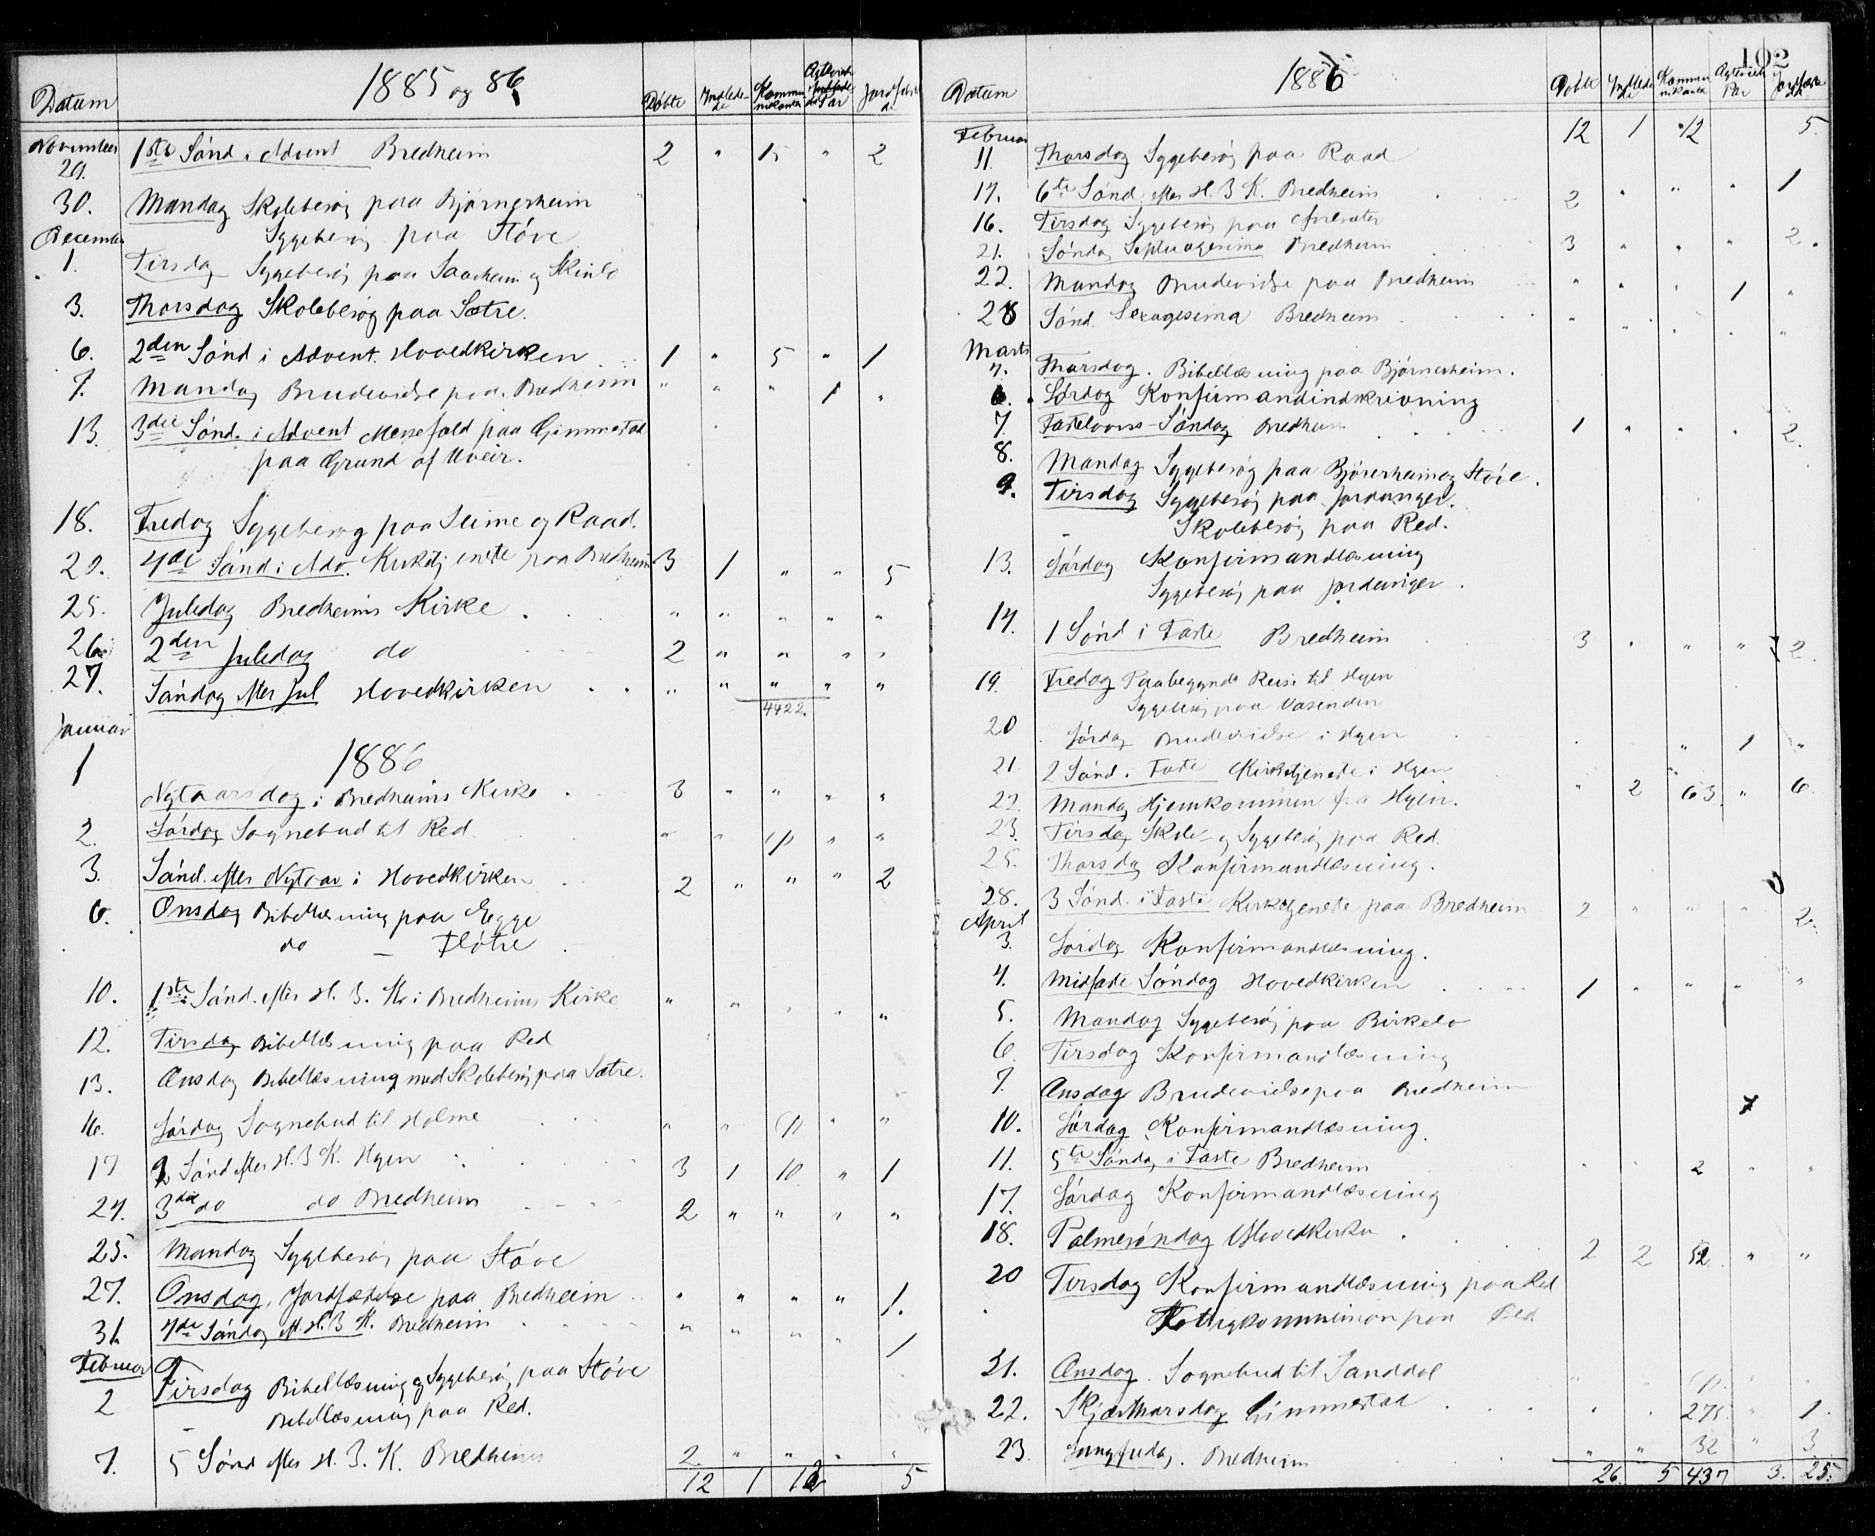 1885 og 86
Datum Døbte Indledede Kommunikanter Ægteviede Par Jordfæstede
November
29. 1ste Sønd. i Advent Bredheim 2 " 15 " 2
30. Mandag Skolebesøg paa Bjørnesheim
Sygebesøg paa Støve
December
1. Tirsdag Sygebesøg paa Saarheim og
3. Thorsdag Skolebesøg paa Sætre.
6. 2den Sønd i Advent. Hovedkirken 1 " 5 " 1
7. Mandag Brudevielse paa Bredheim " " " 1 "
13. 3die Sønd. i Advent Messefald paa Gimmestad
paa Grund af Uveir.
18. Fredag Sygebesøg paa Seime og Raad.
20. 4de Sønd i Adv. Kirketjeneste paa Bredheim 3 1 " " 5
25. Juledag Bredheims Kirke " " " " "
26 2den Juledag do 2 " " " "
27. Søndag efter Jul Hovedkirken " " " " "
4422.
Januar
1886
1 Nytaarsdag i Bredheims Kirke 3 " " " "
2. Lørdag Sognebud til Red " " (1) " "
3. Sønd. efter Nytaar i Hovedkirken 2 " " " 2
6. Onsdag Bibellæsning paa Egge
do — Fløtre
10. 1ste Sønd. efter H. 3. K. i Bredheims Kirke " " " " "
12. Tirsdag Bibellæsning paa Red
13. Onsdag Bibellæsning med Skolebesøg paa Sætre.
16. Lørdag Sognebud til Holme " " (1) " "
17 2 Sønd efter H. 3 K. Hyen 3 1 10 " 1
24. 3die do do Bredheim 2 " " " "
25. Mandag Sygebesøg paa Støve
27. Onsdag, Jordfæstelse paa Bredheim " " " " 1.
31. 4de Søndag eft. H. 3 K. Bredheim " " " " 1
Februar
2 Tirsdag Bibellæsning og Sygebesøg paa Støve
Bibellæsning paa Red.
7. 5 Sønd efter H. 3. K. Bredheim 2 " " " "
12 1 12 5
102
1886
Datum Døbte Indledede Kommunikanter Ægteviede Par Jordfæstede
Februar 12 1 12 5.
11. Thorsdag Sygebesøg paa Raad
14. 6te Sønd. efter H. 3 K. Bredheim 2 " " " 1
16. Tirsdag Sygebesøg paa
21. Søndag Septuagesima Bredheim 3 " " " 2.
22. Mandag Brudevielse paa Bredheim " " " 1 "
28 Sønd. Sexagesima Bredheim " " " " "
Marts
4. Thorsdag. Bibellæsning paa Bjørnesheim.
6. Lørdag Konfirmandindskrivning
7. Fastelavns-Søndag Bredheim 1 " " " 2.
8. Mandag Sygebesøg paa Bjørnesheim og Støve.
9. Tirsdag Sygebesøg paa Jordanger.
Skolebesøg paa Red.
13. Lørdag Konfirmandlæsning
Sygebesøg paa Jordanger.
14. 1 Sønd i Faste Bredheim 3 " " " 2.
19. Fredag Paabegyndt Reise til Hyen
Sygebesøg paa Vasenden
20 Lørdag Brudevielse i Hyen " " " 1 "
21 2 Sønd. i Faste Kirketjeneste i Hyen " 2 63 " 6.
22. Mandag Hjemkommen fra Hyen.
23. Tirsdag Skole- og Sygebesøg paa Red.
25. Thorsdag Konfirmandlæsning.
28. 3 Sønd. i Faste Kirketjeneste paa Bredheim 2 " " " 2.
April
3. Lørdag Konfirmandlæsning.
4. Midfaste Søndag Hovedkirken 1 " " " "
5. Mandag Sygebesøg paa Birkelo
6. Tirsdag Konfirmandlæsning
7. Onsdag Brudevielse paa Bredheim 1
10. Lørdag Konfirmandlæsning.
11. 5te Søndag i Faste Bredheim " " 2 " "
17. Lørdag Konfirmandlæsning
18. Palmesøndag Hovedkirken 2 2 52 " "
20 Tirsdag Konfirmandlæsning paa Red
Fattigkommission paa Red
21. Onsdag. Sognebud til Sanddal " " (1) " "
22. Skjærthorsdag Gimmestad " " 275 " 1.
23 Langfredag. Bredheim " " 32 " 3
26. 5 437 3. 25.